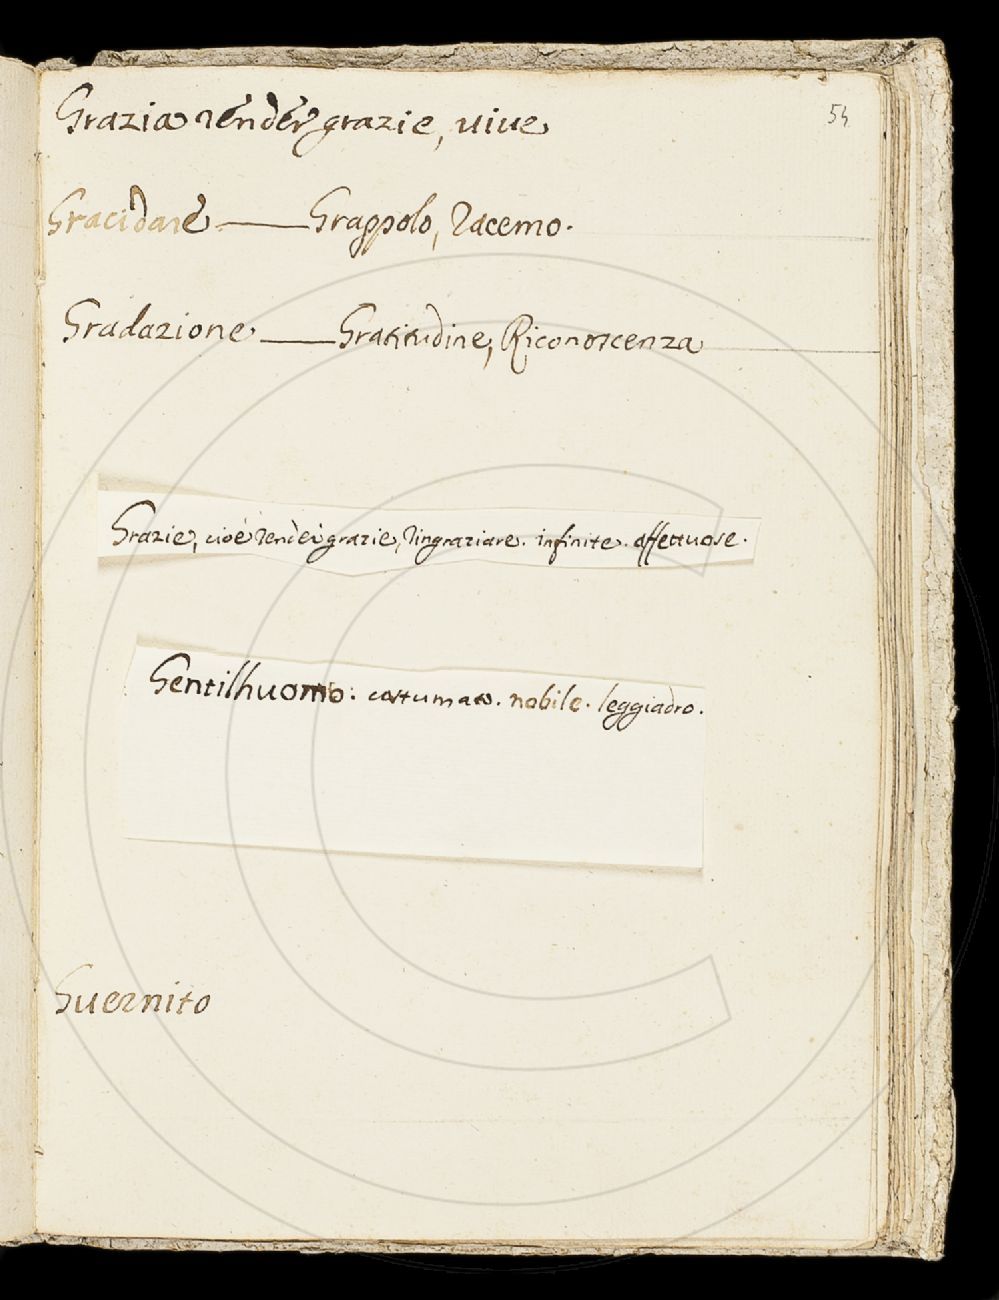 54
Grazia render grazie, uiue
Gracidare — Grappolo, Racemo.
Gradazione — Gratitudine, Riconoscenza
Grazie, cioè render grazie, Ringraziare. infinite. affettuose.
Gentilhuomo. costumato. nobile. leggiadro.
Guernito